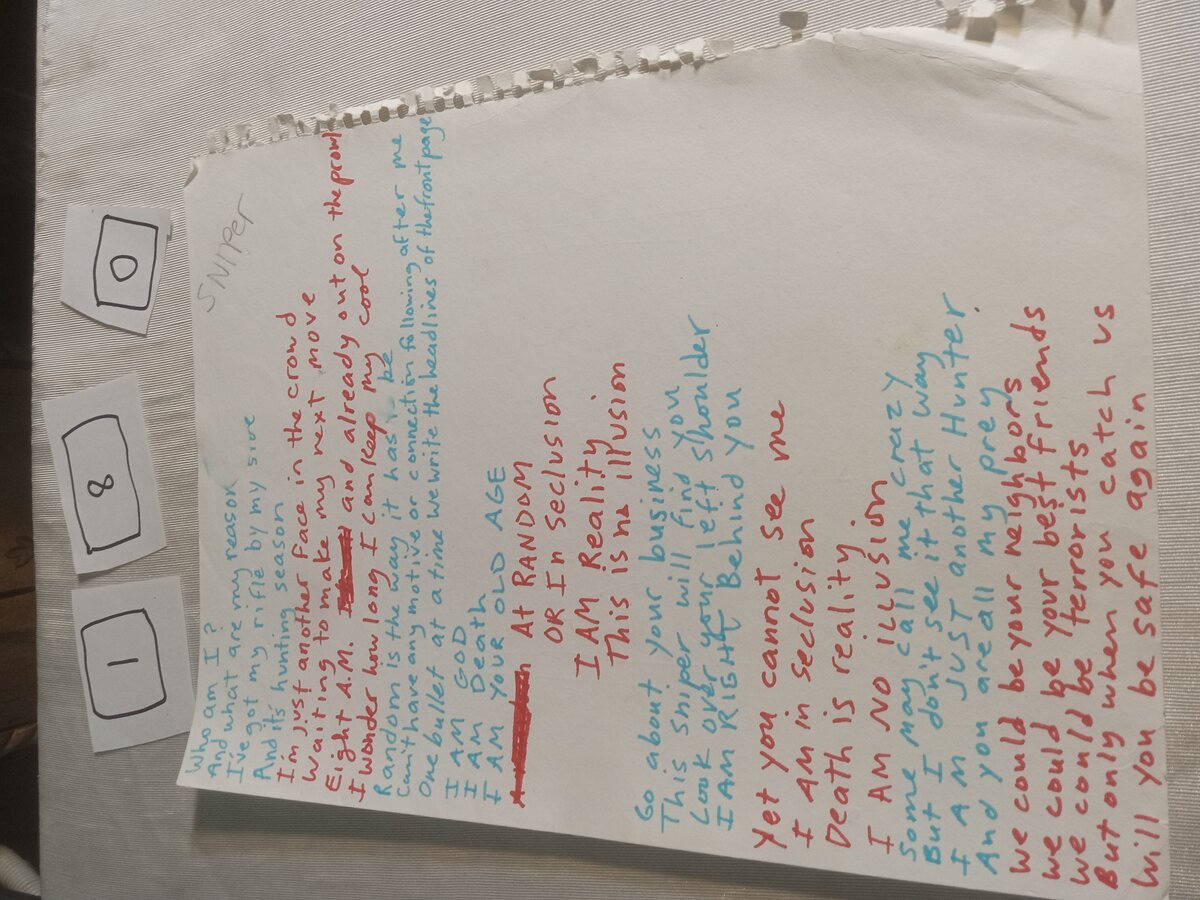 1 8 0
SNIPER
Who am I?
And what are my reason
I've got my rifle by my side
And its hunting season
I'm just another face in the crowd
Waiting to make my next move
Eight A.M. and already out on the prowl
I wonder how long I can keep my cool
Random is the way it has be
Can't have any motive or connection following after me
One bullet at a time we write the headlines of the front page
I AM GOD
I AM Death
I AM YOUR OLD AGE
At RANDOM
OR In Seclusion
I AM Reality
This is no illusion
Go about your business
This sniper will find you
Look over your left shoulder
I AM RIGHT Behind YOU
Yet you cannot see me
I AM in seclusion
Death is reality
I AM NO iLLUSION
Some may call me crazy
But I don't see it that way
I AM JUST another Hunter
And you are all my prey
We could be your neighbors
We could be your best friends
We could be terrorists
But only when you catch us
Will you be safe again